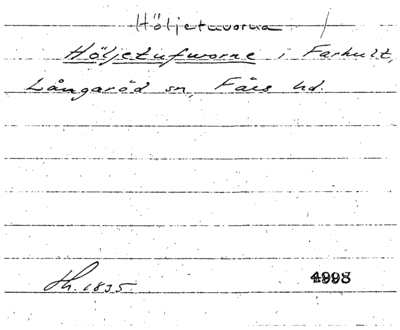 Höljetuvorna
Höljetufworne i Farhult,
Långaröd sn, Färs hd.
Sk. 1835. 4998